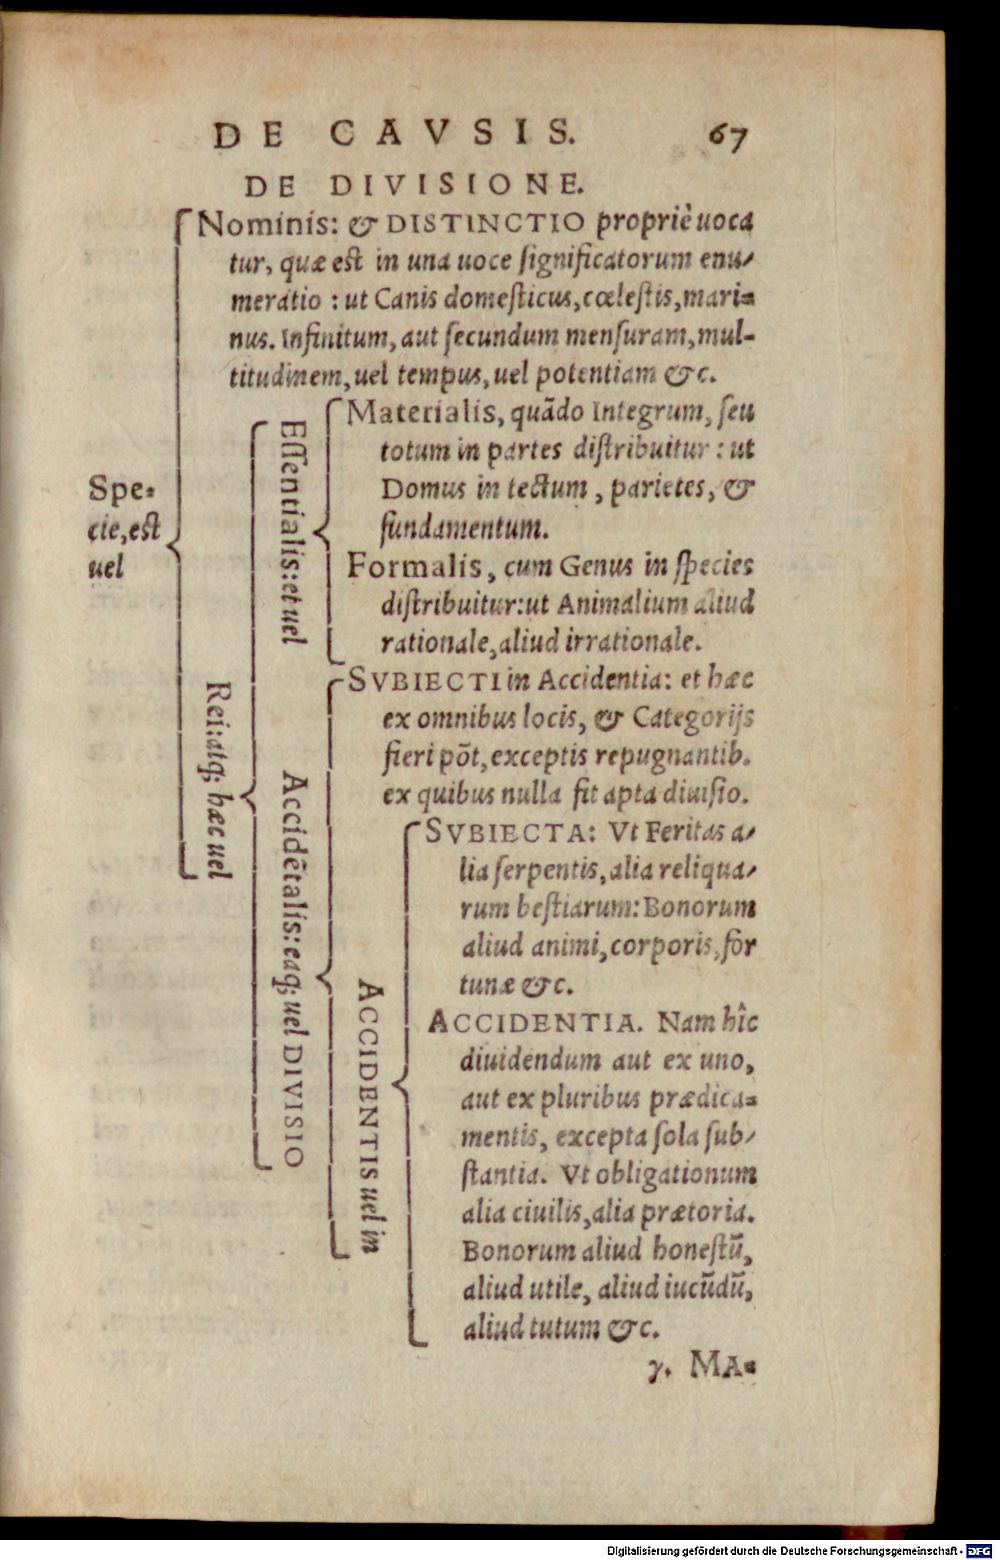 DE CAVSIS. 67
DE DIVISIONE.
Spe-
cie, est
uel
Nominis: & DISTINCTIO propriè uoca
tur, quæ est in una uoce significatorum enu-
meratio : ut Canis domesticus, cœlestis, mari-
nus. Infinitum, aut secundum mensuram, mul-
titudinem, uel tempus, uel potentiam &c.
Rei: atq; hæc uel
Essentialis: et uel
Materialis, quādo Integrum, seu
totum in partes distribuitur : ut
Domus in tectum, parietes, &
fundamentum.
Formalis, cum Genus in species
distribuitur: ut Animalium aliud
rationale, aliud irrationale.
Accidētalis: eaq; uel DIVISIO
SVBIECTI in Accidentia: et hæc
ex omnibus locis, & Categorijs
fieri põt, exceptis repugnantib.
ex quibus nulla fit apta diuisio.
ACCIDENTIS uel in
SVBIECTA: Vt Feritas a-
lia serpentis, alia reliqua-
rum bestiarum: Bonorum
aliud animi, corporis, for
tunæ &c.
ACCIDENTIA. Nam hîc
diuidendum aut ex uno,
aut ex pluribus prædica-
mentis, excepta sola sub-
stantia. Vt obligationum
alia ciuilis, alia prætoria.
Bonorum aliud honestū,
aliud utile, aliud iucūdū,
aliud tutum &c.
γ. MA-
Digitalisierung gefördert durch die Deutsche Forschungsgemeinschaft - DFG